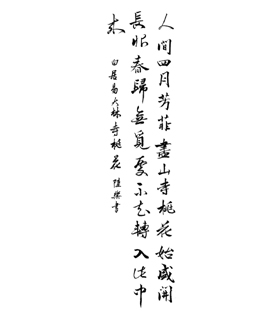 人間四月芳菲盡山寺桃花始盛開
長恨春歸無覓處不知轉入此中
来
白居易大林寺桃花 陸 書